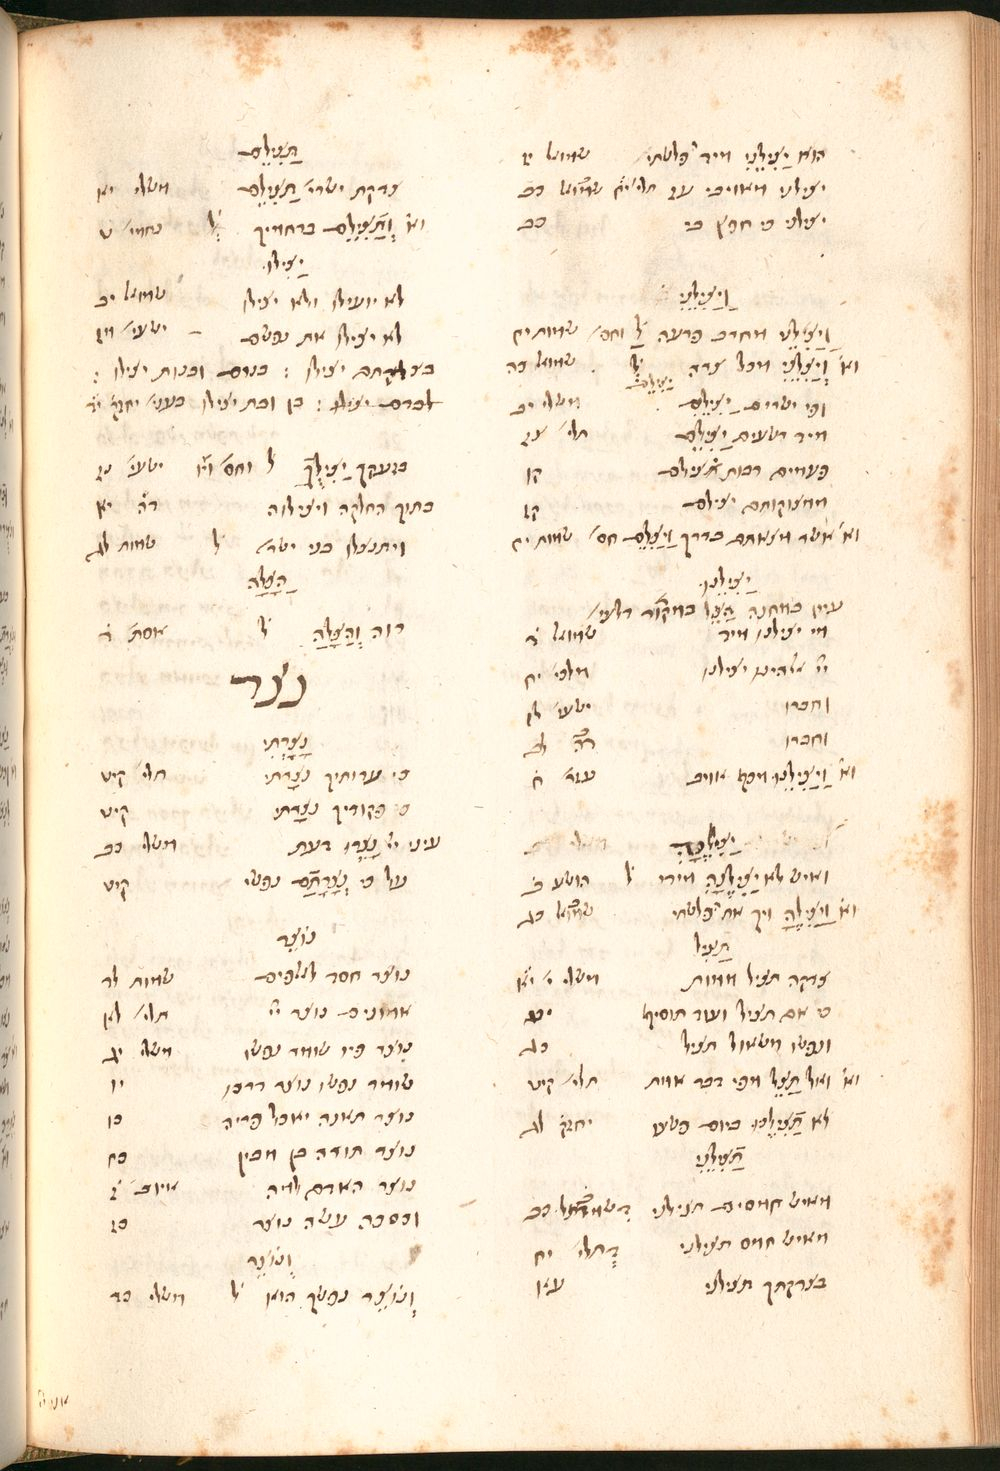 הוא יַצִּילֵנִי מיד פלשתי שמואל יז
יצילני מאויבי עז תלי׳ יח שמואל כב
יצילני כי חפץ בי כב
וַיַּצִּילֵנִי
וַיַּצִּילֵנִי מחרב פרעה ל׳ וחס׳ שמות יח
וא׳ וְיַצִּילֵנִי מכל צרה ל׳ שמואל כה
יַצִּילֵם
ופי ישרים יַצִּילֵם משלי יב
מיד רשעים יַצִּילֵם תלי׳
פעמים רבות יצילם קו
ממצוקותם יצילם קז
וא׳ אשר מצאתם בדרך וַיַּצִּלֵם חס׳ שמות יח
יַצִּילֵנוּ
מי יצילנו מיד שמואל ד׳
יי׳ אלהינו יצילנו מלכי׳ יח
וחברו ישעי׳ לו
וחברו
וא׳ וַיַּצִּילֵנוּ מכף אויב עזר׳ ח
יַצִּילֶנָּה
ואיש לא יַצִּילֶנָּה מידי ל׳ הושע ב׳
וא׳ וַיַּצִּילֶהָ ויך את פלשתי שמואל כג
תַצִּיל
צדקה תציל ממות משלי י׳ יא
כי אם תציל ועוד תוסיף יט
ונפשו משאול תציל כג
וא׳ ואל תַצֵּל מפי דבר אמת תלי׳ קיט
לא תַצִּילֶנּוּ ביום פשעו יחזק׳ לג
תַּצִּילֵנִי
מאיש חמסים תצילני כב
מאיש חמס תצילני דתלי׳ יח
בצדקתך תצילני עא
תַּצִּילֵם
צדקת ישרי׳ תַּצִּילֵם משלי יא
וא׳ וְתַצִּילֵם ברחמיך ל׳ נחמי׳ ט
יַצִּילוּ
לא יועילו ולא יצילו שמואל יב
לא יצילו את נפשם ישעי׳ מז
בצדקתם יצילו : בנים ובנות יצילו :
לבדם יצילו : בן ובת יצילו בעני׳ יחזק׳ יד
בזעקך יַצִּילֻךְ ל׳ וחס׳ ויו ישעי׳ נז
בתוך החלקה ויצילוה דה׳ יא
ויתנצלו בני ישר׳ ל׳ שמות לג
הַצָּלָה
רוח וְהַצָּלָה ל׳ אסת׳ ד
נצר
נָצָרְתִּי
כי עדותיך נצרתי תלי׳ קיט
כי פקודיך נצרתי קיט
עיני יי׳ נָצְרוּ דעת משלי כב
על כי נְצָרָתַּם נפשי קיט
נוֹצֵר
נוצר חסד לאלפים שמות לד
אמונים נוצר יי׳ תלי׳ לא
נוצר פיו שומר נפשו משלי יג
שומר נפשו נוצר דרכו יו
נוצר תאנה יאכל פריה כז
נוצר תורה בן מבין כח
נוצר האדם למה איוב ז׳
וכסכה עשה נוצר כז
וְנוֹצֵר
וְנוֹצֵר נפשך הוא ל׳ משלי כד